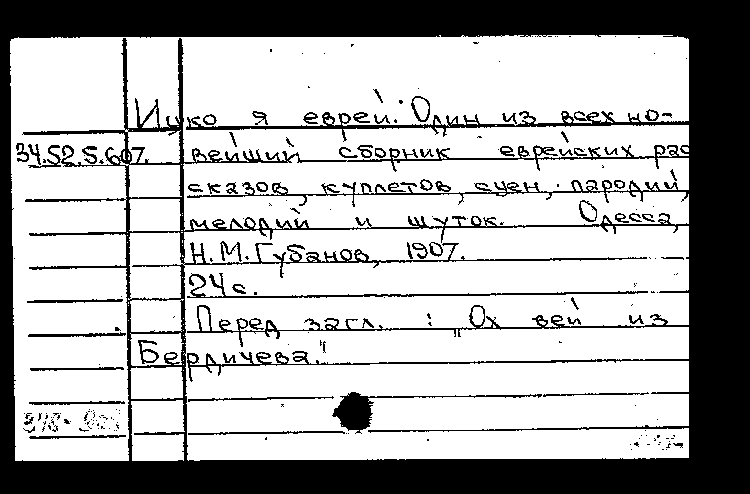 Ицко я еврей. Один из всех но-
34.52.5.607. вейший сборник еврейских рас
сказов, куплетов, сцен, пародий,
мелодий и шуток. Одесса,
Н.М.Губанов, 1907.
24 с.
Перед загл. : "Ох вей из
Бердичева."